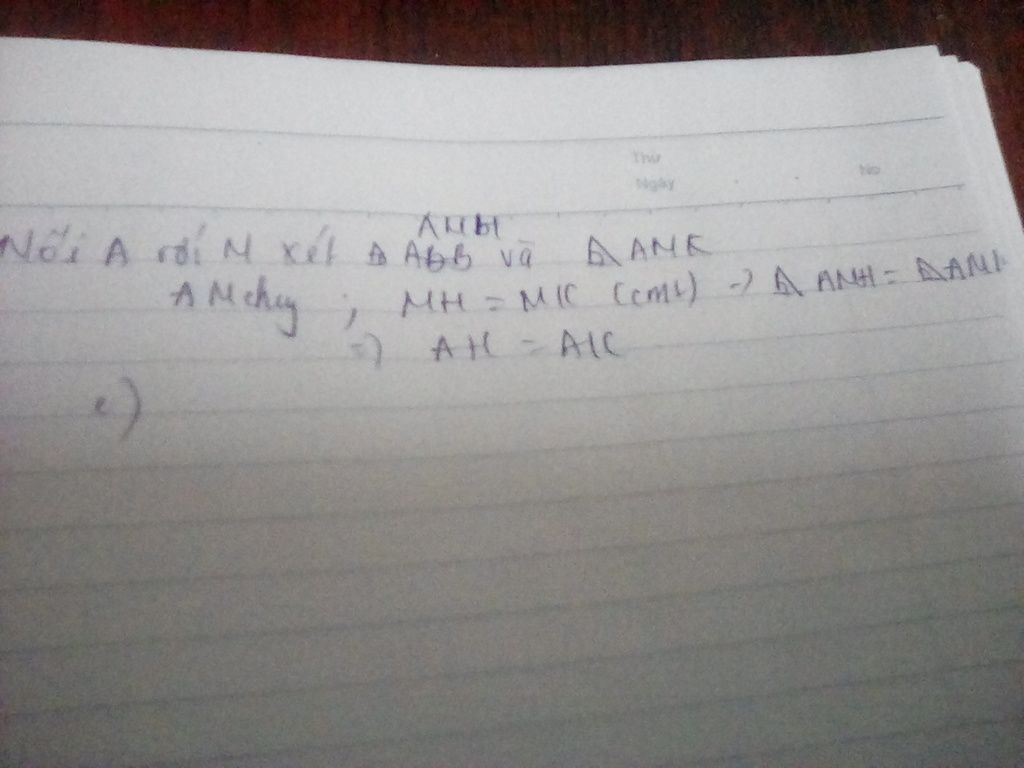 Thứ
Ngày No
AMH
Nối A với M xét Δ và Δ AMK
AM chung ; MH = MK (cmt) => Δ AMH = Δ AMK
=> AH = AK
c)